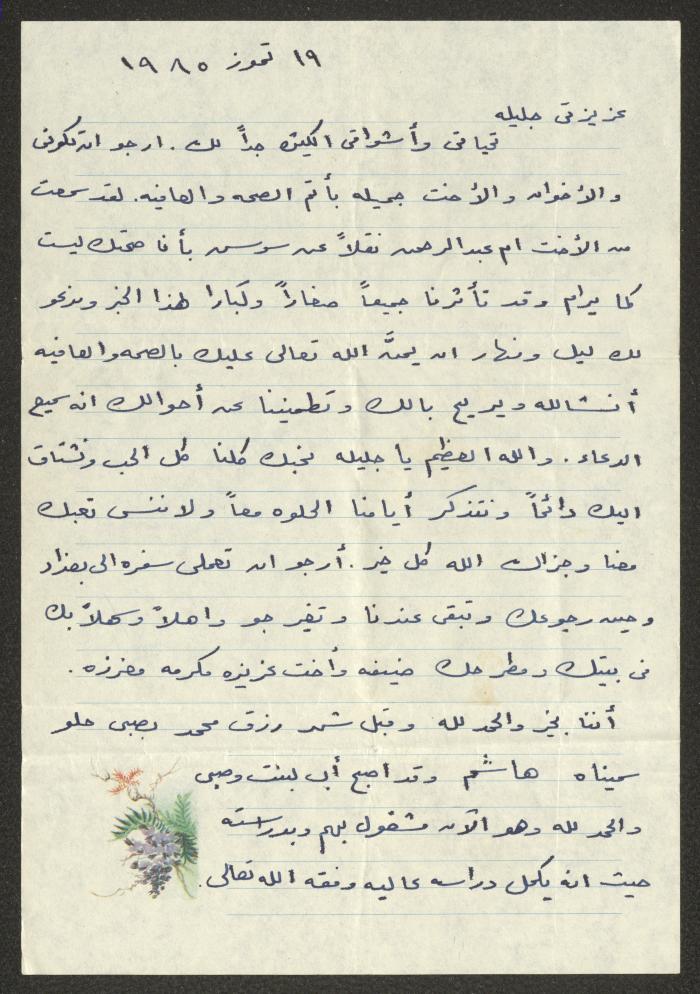 ١٩ تموز ١٩٨٥
عزيزتي جليله
تحياتي وأشواقي الكثيره جداً لك. ارجو ان تكوني
والأخوان والأخت جميله بأتم الصحه والعافيه. لقد سمعت
من الأخت ام عبد الرحمن نقلاً عن سوسن بأن صحتك ليست
كما يرام وقد تأثرنا جميعاً صغاراً وكبارا لهذا الخبر وندعو
لك ليل ونهار ان يمنَّ الله تعالى عليك بالصحه والعافيه
أنشالله ويريح بالك وتطمينينا عن أحوالك انه سميع
الدعاء. والله العظيم يا جليله نحبك كلنا كل الحب ونشتاق
اليك دائماً ونتذكر أيامنا الحلوه معاً ولا ننسى تعبك
معنا وجزاك الله كل خير. أرجو ان تعملي سفره الى بغداد
وحين رجوعك وتبقى عندنا وتغير جو واهلاً وسهلاً بك
في بيتك ومطرحك ضيفه وأخت عزيزه مكرمه معززه.
أننا بخير والحمد لله وقبل شهر رزق محمد بصبي حلو
سميناه هاشم وقد اصبح أب لبنت وصبي
والحمد لله وهو الآن مشغول بهم وبدراسته
حيث انه يكمل دراسه عاليه وفقه الله تعالى.